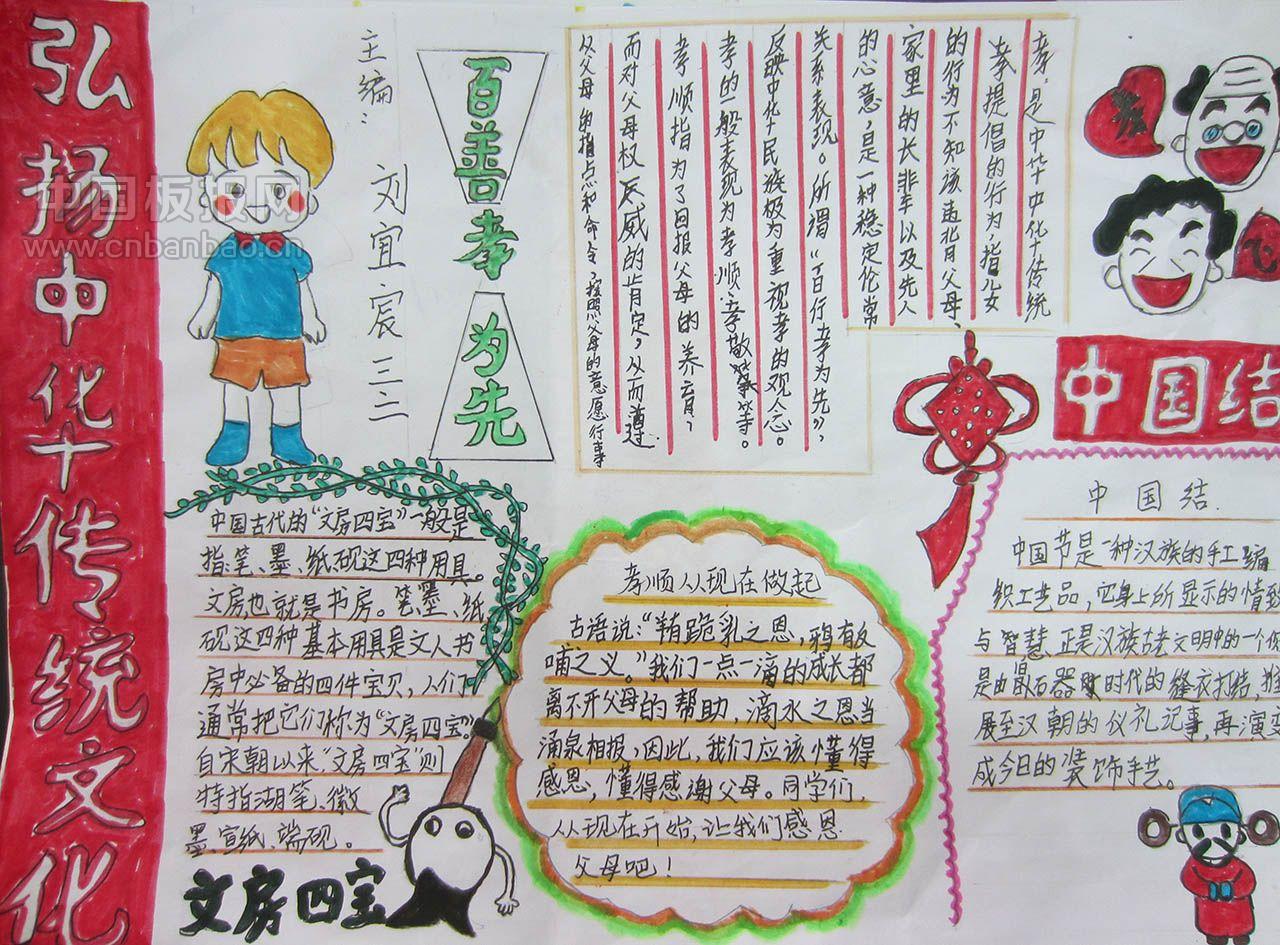 弘扬中华传统文化
主编：刘宜宸 三二
百善孝为先
孝，是中华中华传统
孝提倡的行为，指儿女
的行为不知该违背父母、
家里的长非车以及先人
的心意，是一种稳定伦常
关系表现。所谓“百行孝为先”，
反映中华民族极为重视孝的观念。
孝的一般表现为孝顺、孝敬等。
孝顺指为了回报父母的养育，
而对父母权威的肯定，从而遵
从父母的指点和命令，按照父母的意愿行事
中国结
中国结
中国节是一种汉族的手工编
织工艺品，它身上所显示的情致
与智慧正是汉族古老文明中的一个
是由旧石器时代的缝衣打结，推
展至汉朝的仪礼记事，再演变
成今日的装饰手艺。
中国古代的“文房四宝”一般是
指笔、墨、纸砚这四种用具。
文房也就是书房。笔墨、纸
砚这四种基本用具是文人书
房中必备的四件宝贝，人们
通常把它们称为“文房四宝”。
自宋朝以来“文房四宝”则
特指湖笔、徽
墨、宣纸、端砚。
文房四宝
孝顺从现在做起
古语说：“羊有跪乳之恩，鸦有反
哺之义。”我们一点一滴的成长都
离不开父母的帮助，滴水之恩当
涌泉相报，因此，我们应该懂得
感恩，懂得感谢父母。同学们，
从现在开始，让我们感恩
父母吧！
中国板报网
www.cnbanbao.cn